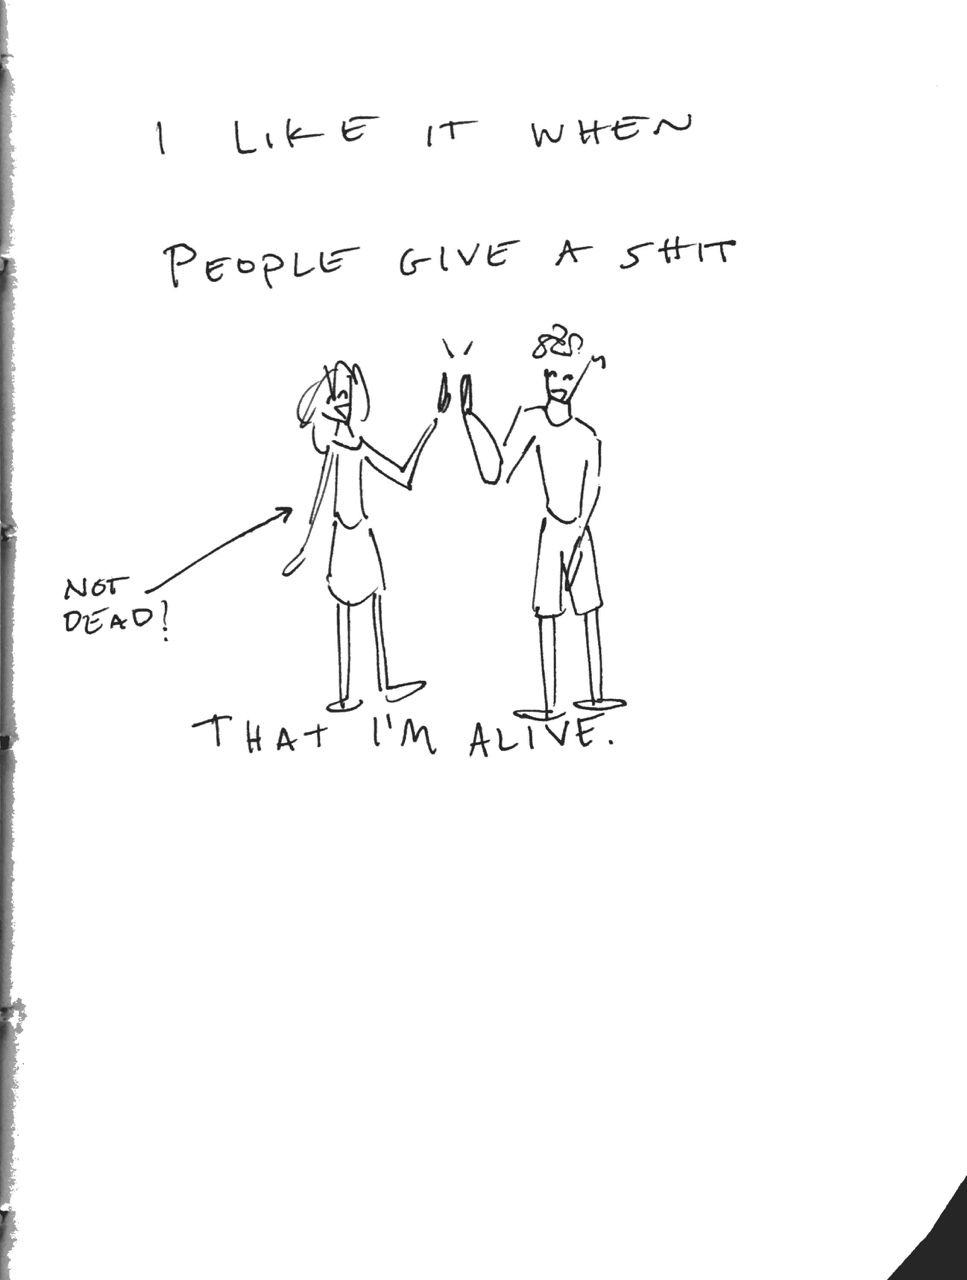 I LIKE IT WHEN
PEOPLE GIVE A SHIT
NOT
DEAD!
THAT I'M ALIVE.